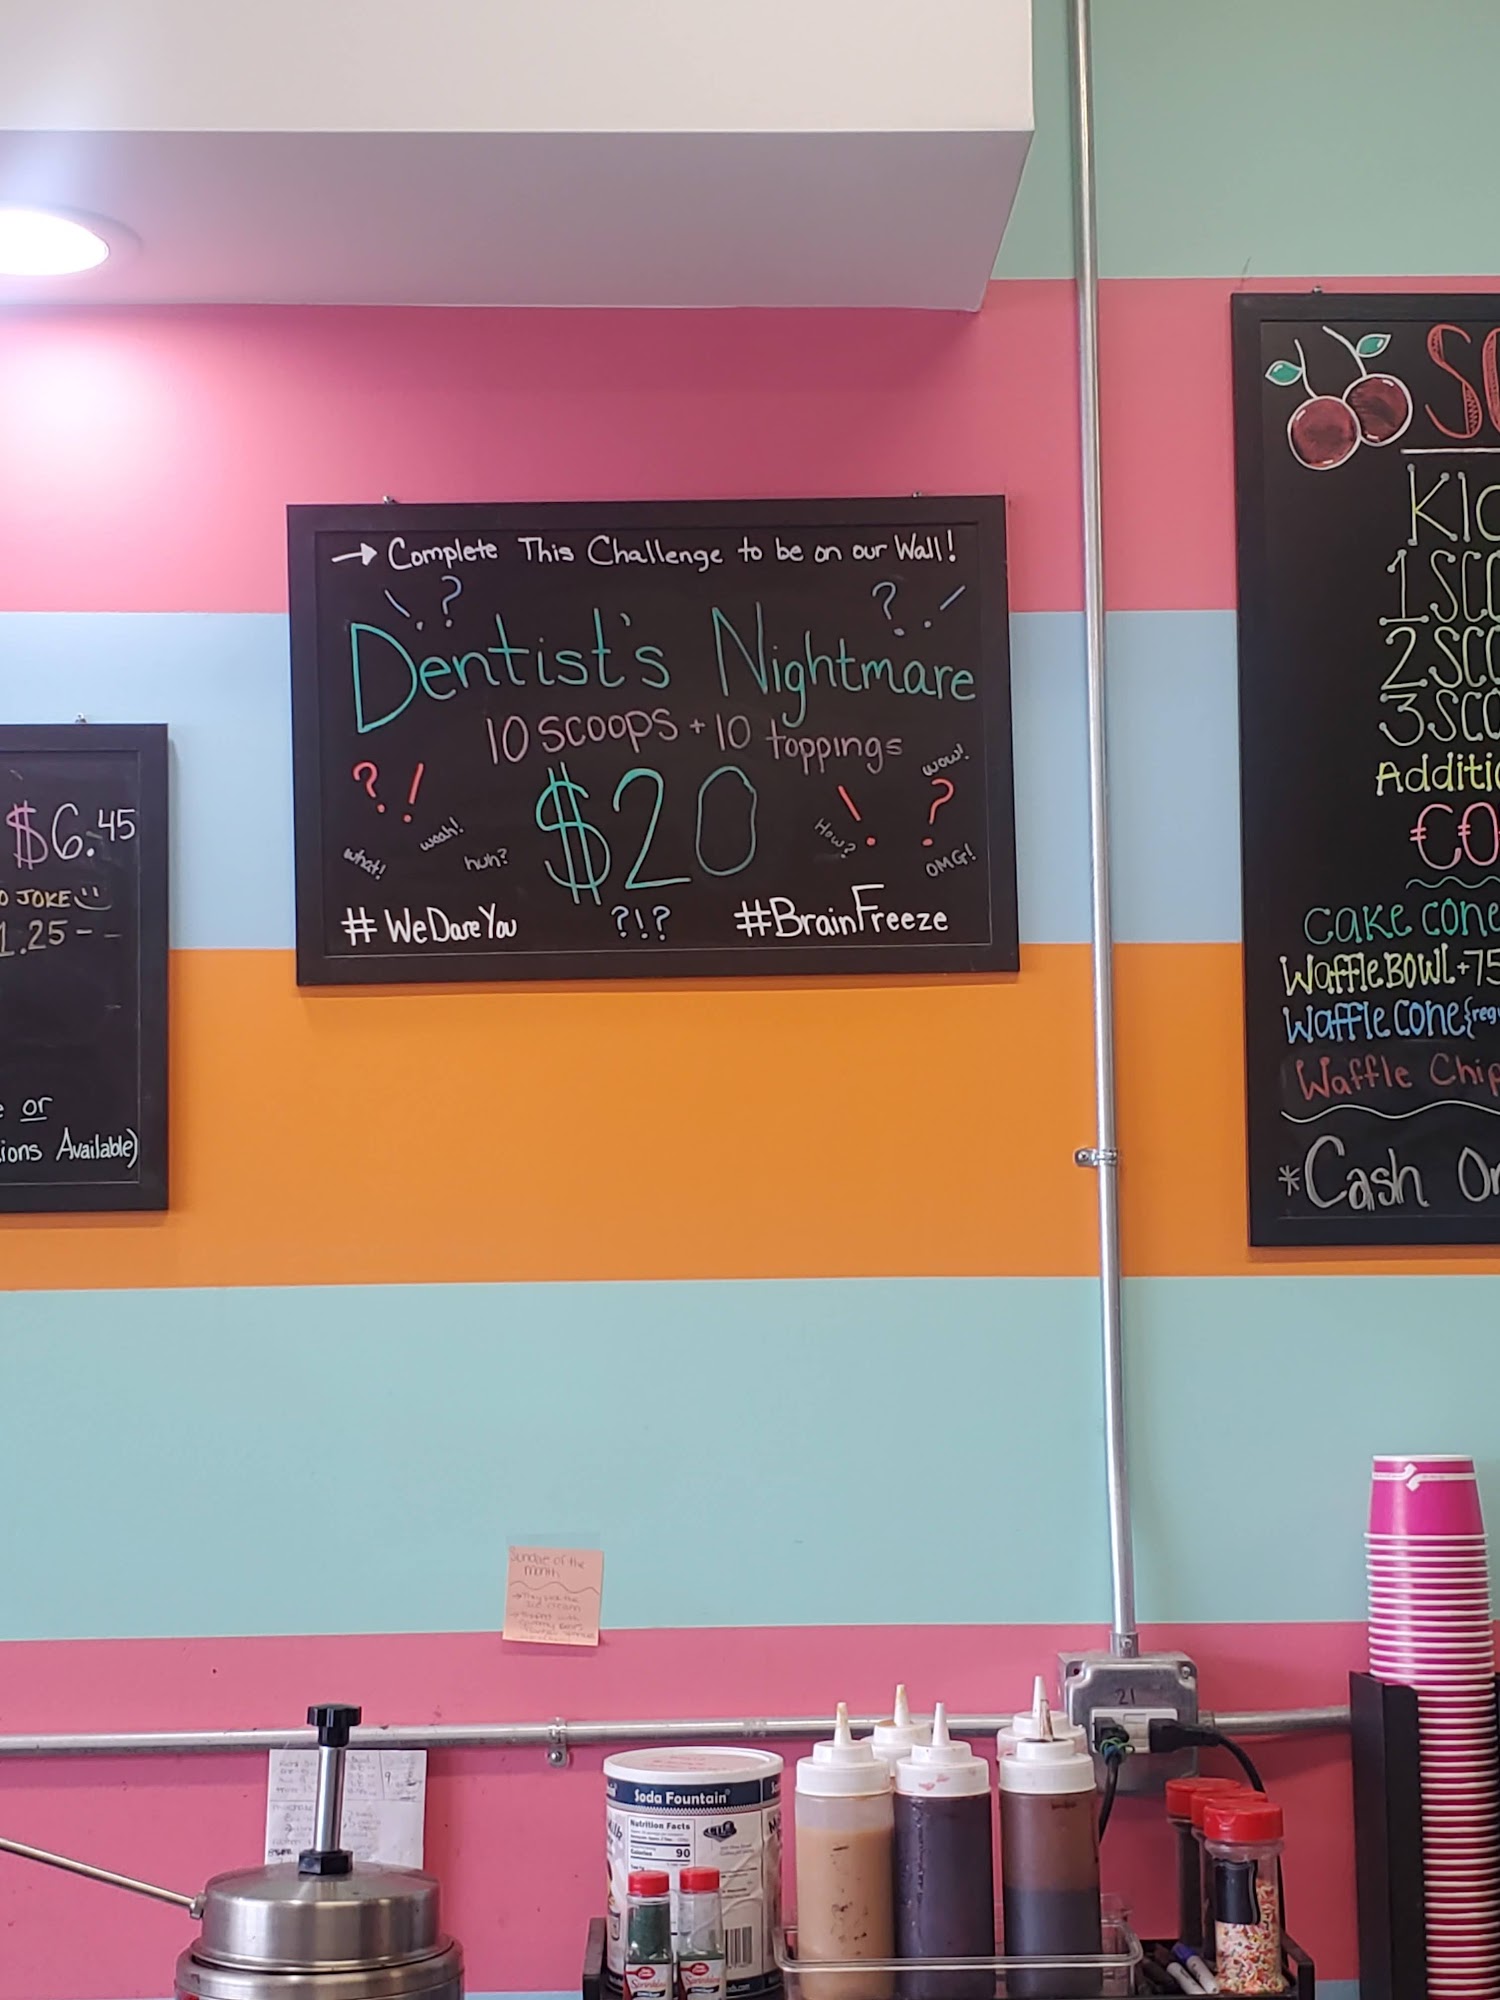 → Complete This Challenge to be on our Wall!
! ? ? !
Dentist's Nightmare
10 scoops + 10 toppings
$20
? ! ! ?
wow!
what! woah! huh? How? OMG!
#WeDareYou ?!? #BrainFreeze
$6.45
JOKE
1.25 - -
or
Available)
KI
1 SCO
2 SCO
3 SCO
Additi
CO
CAKE CONE
WAFFLE BOWL + 75
WAFFLE CONE {reg
Waffle Chip
*Cash On
Sundae of the
month
21
Soda Fountain
Nutrition Facts
Calories 90
Sprinkles
Sprinkles